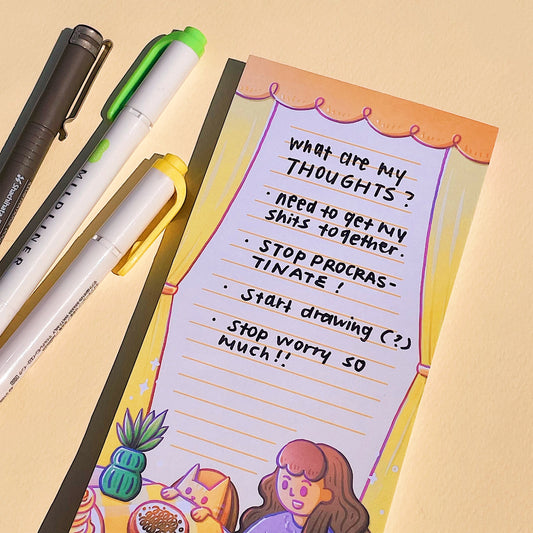 what are my
THOUGHTS?
· need to get my
shits together.
· STOP PROCRAS-
TINATE!
· start drawing (?)
· stop worry so
much!!
MILDLINER
Shachihata